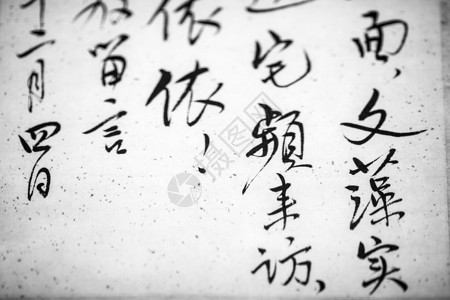 面,文藻实
宅频来访、
依依!
留言
十二月四日